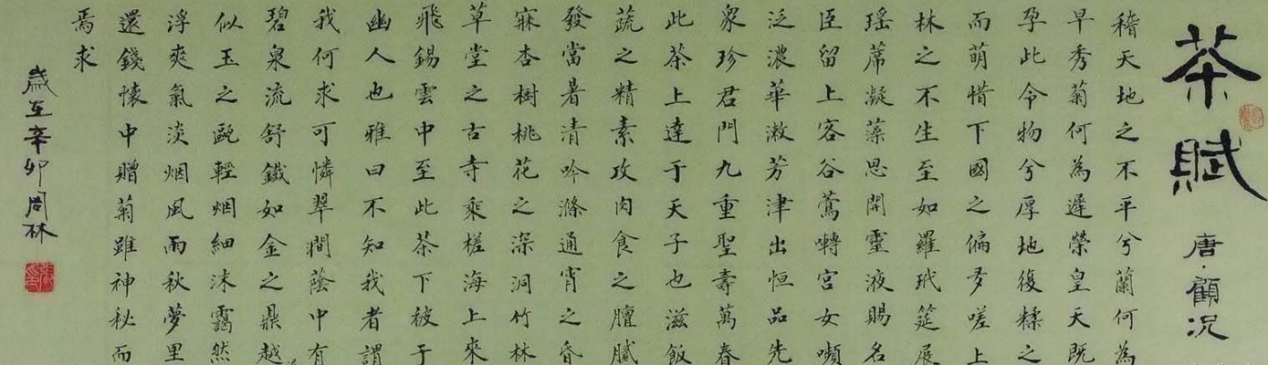 茶賦
唐·顧況
稽天地之不平兮蘭何為
早秀菊何為遲榮皇天既
孕此令物兮厚地復糅之
而萌惜下國之偏多嗟上
林之不生至如羅玳筵展
瑤席凝藻思開靈液賜名
臣留上客谷鶯囀宮女嚬
泛濃華漱芳津出恒品先
衆珍君門九重聖壽萬春
此茶上達于天子也滋飯
蔬之精素攻肉食之膻膩
發當暑清吟滌通宵之昏
寐杏樹桃花之深洞竹林
草堂之古寺乘槎海上來
飛錫雲中至此茶下被于
幽人也雅曰不知我者謂
我何求可憐翠澗蔭中有
碧泉流舒鐵如金之鼎越
似玉之甌輕烟細沫靄然
浮爽氣淡烟風雨秋夢里
還錢懷中贈菊雖神秋而
焉求
歲在辛卯周林